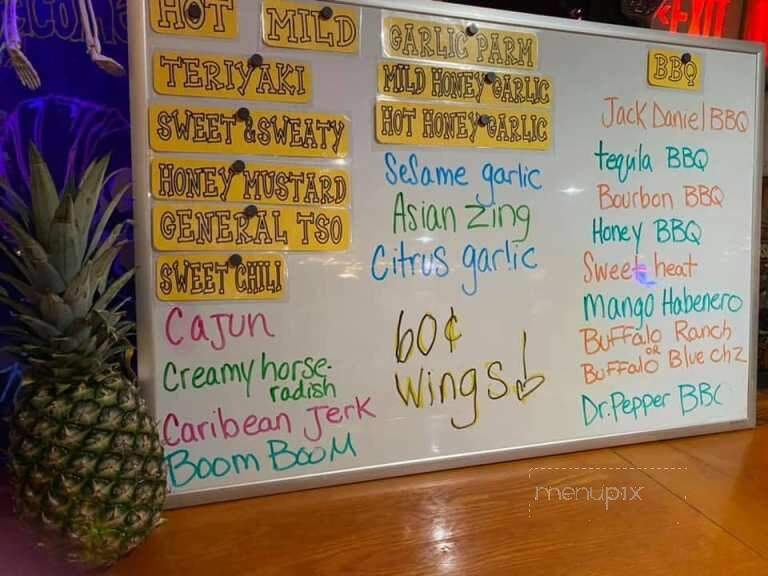 HOT
MILD
TERIYAKI
SWEET & SWEATY
HONEY MUSTARD
GENERAL TSO
SWEET CHILI
Cajun
Creamy horse-
radish
Caribean Jerk
Boom Boom
GARLIC PARM
MILD HONEY GARLIC
HOT HONEY GARLIC
Sesame garlic
Asian Zing
Citrus garlic
60¢
Wings
BBQ
Jack Daniel BBQ
tequila BBQ
Bourbon BBQ
Honey BBQ
Sweet heat
Mango Habenero
Buffalo Ranch
OR
Buffalo Blue chz
Dr. Pepper BBQ
EXIT
menupix